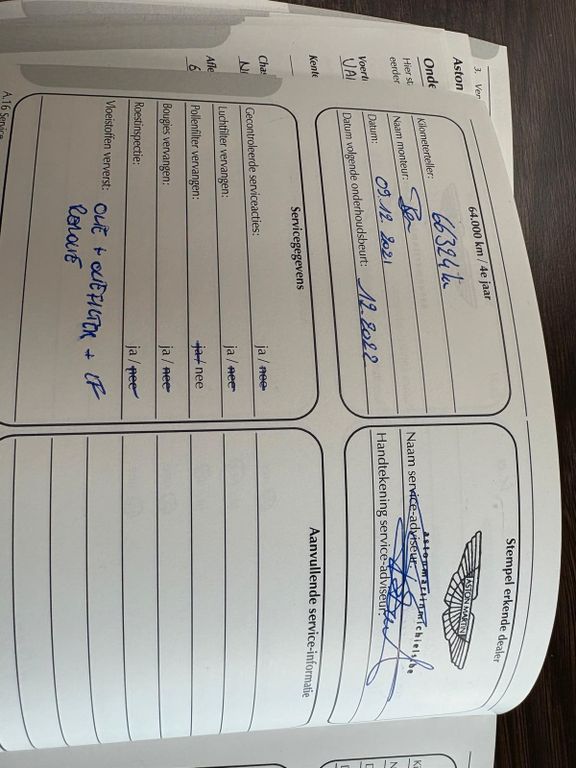 3. Ver
Aston
Onde
Hier st
eerder
Voert
VAN
Kente
Cha
Afle
6
64.000 km / 4e jaar
Kilometerteller: 66324 km
Naam monteur: Ben
Datum: 09.12.2021
Datum volgende onderhoudsbeurt: 12.2022
Stempel erkende dealer
ASTON MARTIN
astonmartinmichiels.be
Naam service-adviseur:
Handtekening service-adviseur:
Servicegegevens
Gecontroleerde serviceacties: ja / nee
Luchtfilter vervangen: ja / nee
Pollenfilter vervangen: ja / nee
Bougies vervangen: ja / nee
Roestinspectie: ja / nee
Vloeistoffen ververst: OLIE + OLIEFILTER + LF
Aanvullende service-informatie
A.16 Service